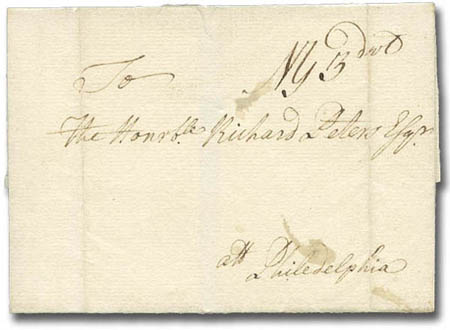 To
NY 3 dwt
The Honrble Richard Peters Esqr
att Philedelphia